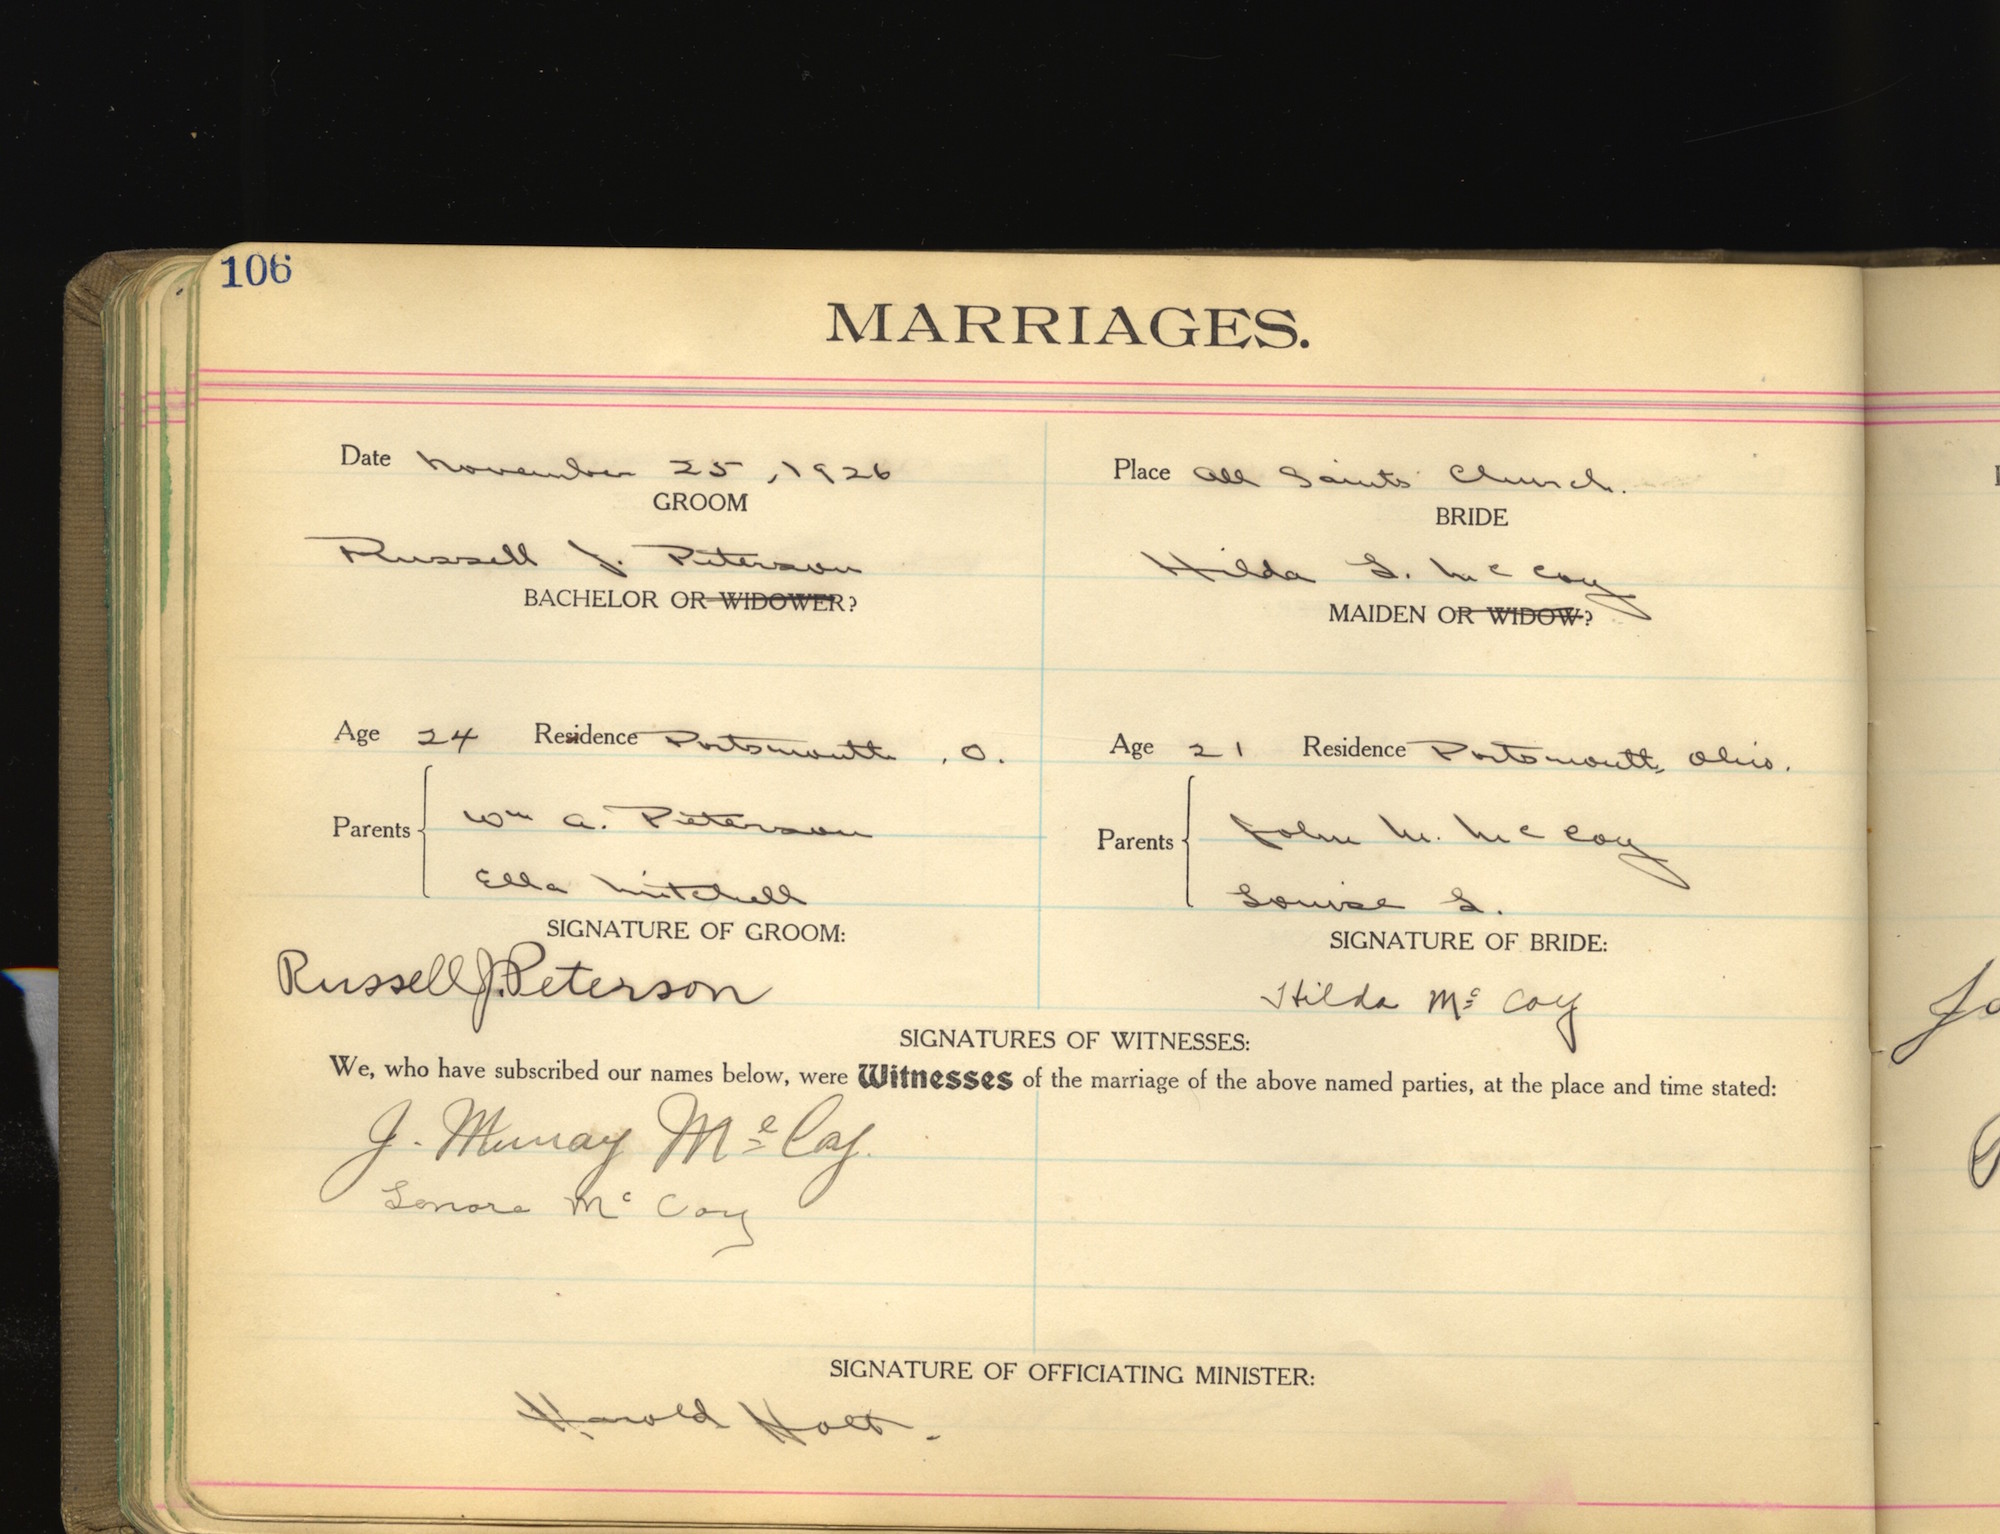 106
MARRIAGES.
Date November 25, 1926
Place All Saints' Church.
GROOM
BRIDE
Russell J. Peterson
Hilda L. McCoy
BACHELOR OR WIDOWER?
MAIDEN OR WIDOW?
Age 24 Residence Portsmouth, O.
Age 21 Residence Portsmouth, Ohio.
Parents
Wm A. Peterson
Ella Mitchell
Parents
John M. McCoy
Louise L.
SIGNATURE OF GROOM:
SIGNATURE OF BRIDE:
Russell J. Peterson
Hilda McCoy
SIGNATURES OF WITNESSES:
We, who have subscribed our names below, were Witnesses of the marriage of the above named parties, at the place and time stated:
J. Murray McCoy.
Lenore McCoy
SIGNATURE OF OFFICIATING MINISTER:
Harold Holt.